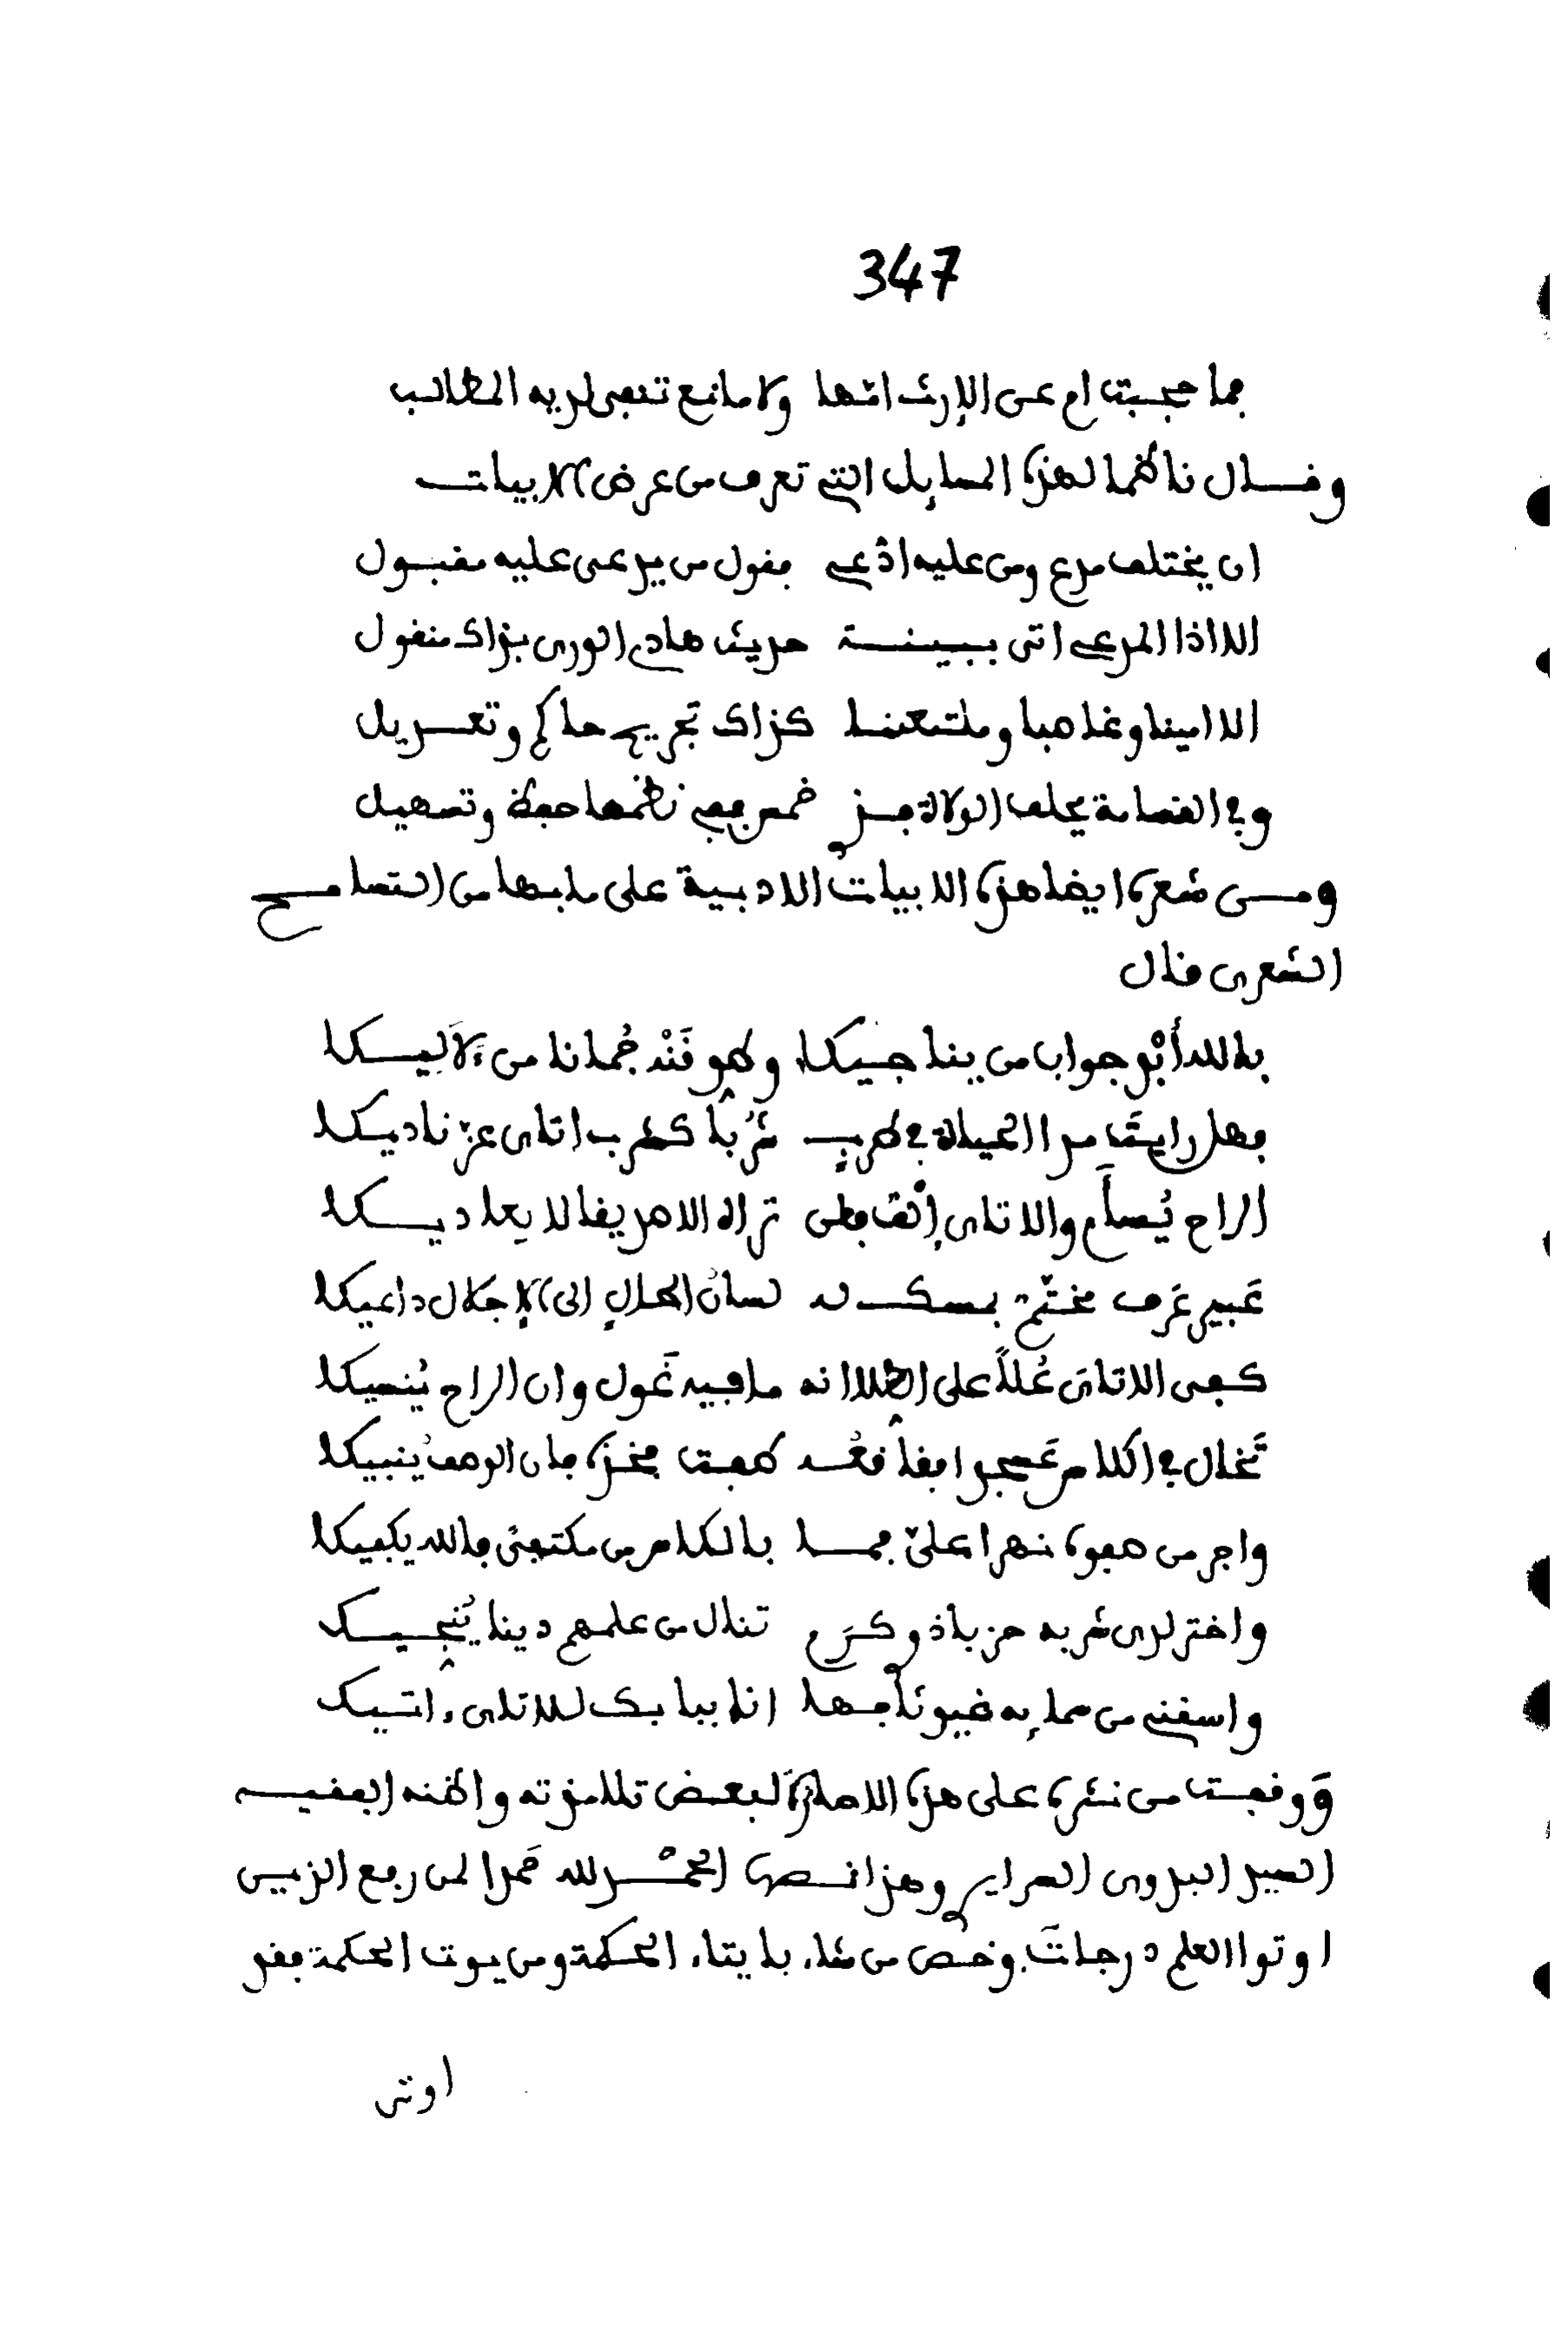 347
فما حجبت ام عن الإرث امّها ولا مانع تنفى لديه المطالب
وقال ناظما لهذه المسايل التي تعرف من عرض الابيات
ان يختلف مدع ومن عليه ادّعي فقول من يدعى عليه مقبول
الا اذا المدعي اتى ببينة حديث هادي الورى بذاك منقول
الا امينا وغاصبا وملتقطا كذاك تجريح حاكم وتعديل
وفي القسامة يحلف الولاة فخذ خمس ففي نظمها حفظ وتسهيل
ومن شعره ايضا هذه الابيات الادبية على ما بها من التسامح
الشعري قال
بالله أبْدِ جواب من يناجيكا وهو فَنْد جُمانا من لآليكا
فهل رايت مدا الحياة في طربٍ شُربا كشرب اتاى عن ناديكا
الراح يُسلَم والاتاى إنْ قطى تراه الا صديقا لا يعاديكا
عَبير عَرف مختّم بمسك له لسانُ الحالِ الى الإجلال داعيكا
كفى الاتاى عُلاً على الطلا انه ما فيه غَول وان الراح يُنسيكا
تخال في الكاس عَسجدا فقاقعُه طفت فخذه فان الوصف يُنبيكا
واجر من صفوه نهرا عليّ فما بالكاس من مكتفىً فالله يكفيكا
واختر لدى شربه حزبا ذو كرَم تنال من علمهم دينا يُنجيك
واسقني من سمايه غيوثا فها انا ببابك للاتاى ءاتيك
وَوقفت من نثره على هذه الاجازة لبعض تلامذته واظنه الفقيه
السيد البدوى السرايرى وهذا نصها الحمْد لله حَمدا لمن رفع الذين
اوتوا العلم درجات وخص من شاء بايتاء الحكمة ومن يوت الحكمة فقد
اوتى